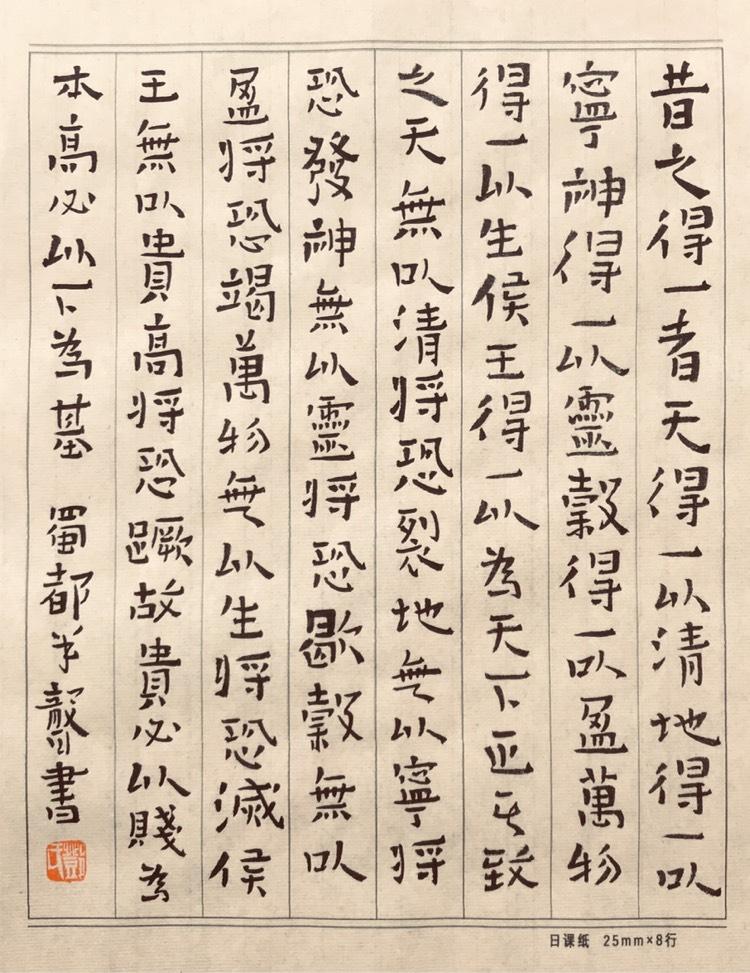 昔之得一者天得一以清地得一以
寧神得一以靈穀得一以盈萬物
得一以生侯王得一以為天下正其致
之天無以清將恐裂地無以寧將
恐發神無以靈將恐歇穀無以
盈將恐竭萬物無以生將恐滅侯
王無以貴高將恐蹶故貴必以賤為
本高必以下為基 蜀都半聾書
日课纸 25mm×8行